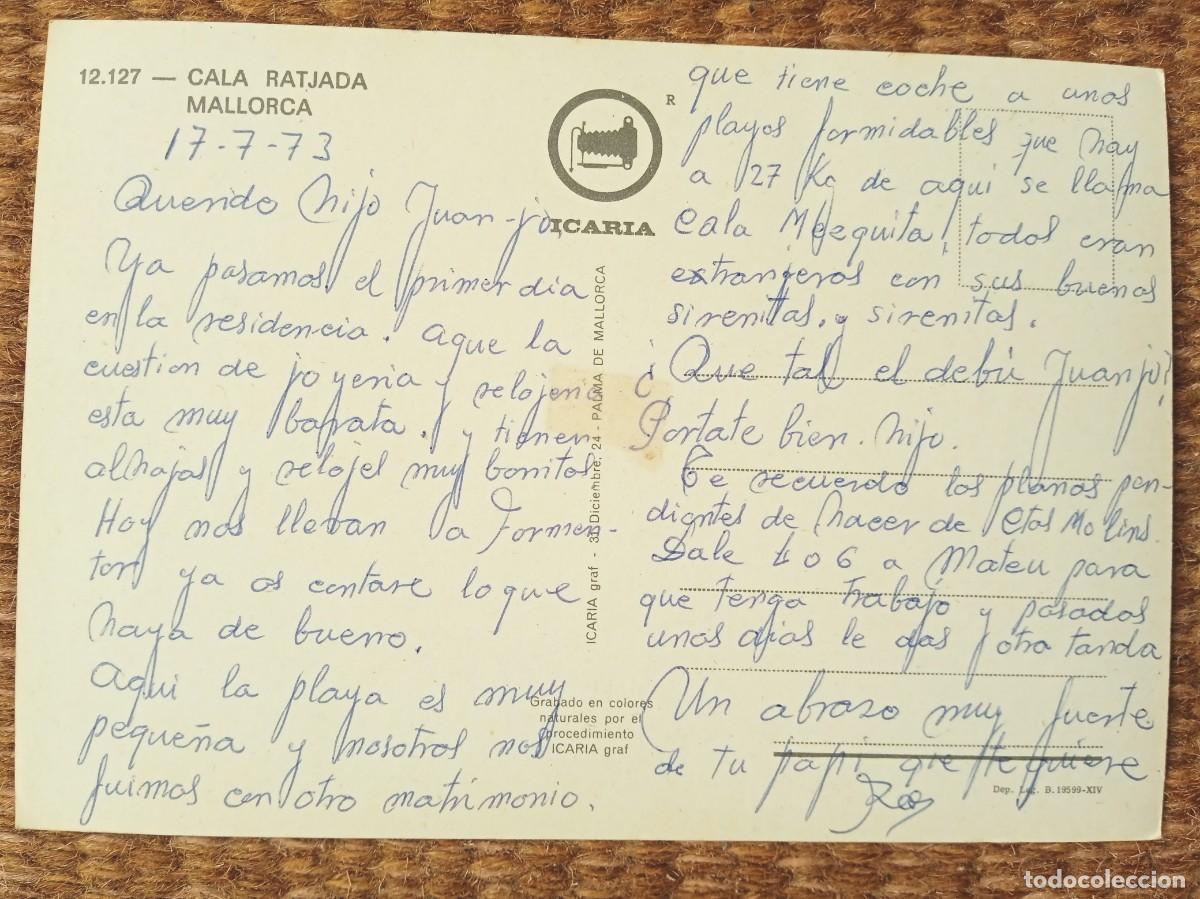 12.127 — CALA RATJADA
MALLORCA
17-7-73
Querido hijo Juan-jo,
Ya pasamos el primer dia
en la residencia. aque la
cuestion de joyeria y relojeria
esta muy barata. y tienen
alhajas y relojes muy bonitos
Hoy nos llevan a Formen-
tor, ya os contare lo que
haya de bueno.
Aqui la playa es muy
pequeña y nosotros nos
fuimos con otro matrimonio.
R
ICARIA
ICARIA graf - 31 Diciembre, 24 - PALMA DE MALLORCA
Grabado en colores
naturales por el
procedimiento
ICARIA graf
que tiene coche a unas
playas formidables que hay
a 27 Kg de aqui se llama
Cala Mezquita, todos eran
extranjeros con sus buenas
sirenitas. y sirenitas.
¿Que tal el debú Juanjo?
Portate bien. hijo.
Te recuerdo los planos pen-
dientes de hacer de Ctas Molins.
Dale 4 o 6 a Mateu para
que tenga trabajo y pasados
unos dias le das otra tanda
Un abrazo muy fuerte
de tu papi que te quiere
Dep. Leg. B. 19599-XIV
todocoleccion